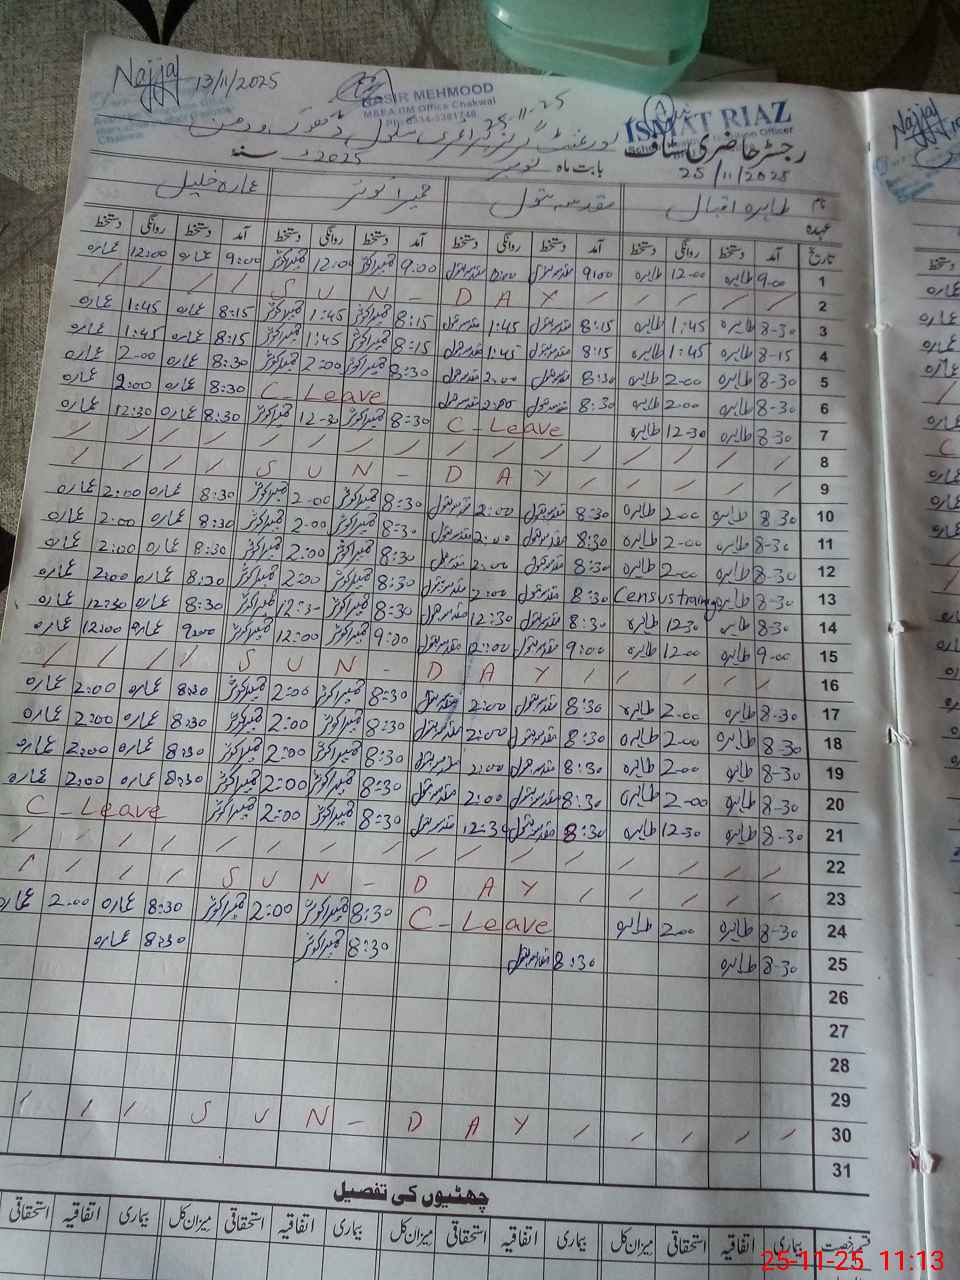 Najjaf 13/11/2025
NASIR MEHMOOD
M&EA DM Office Chakwal
25-11-25
ISMAT RIAZ
رجسٹر حاضری سٹاف
25/11/2025
بابت ماہ نومبر سنہ 2025ء
نام طاہرہ اقبال مقدس بتول حمیرا کوثر عمارہ خلیل
عہدہ
تاریخ آمد دستخط روانگی دستخط آمد دستخط روانگی دستخط آمد دستخط روانگی دستخط آمد دستخط روانگی دستخط
1 9-00 طاہرہ 12-00 طاہرہ 9:00 مقدس بتول 12:00 مقدس بتول 9:00 حمیرا کوثر 12:00 حمیرا کوثر 9:00 عمارہ 12:00 عمارہ
2 / / / / / SUN-DAY / / / /
3 8-30 طاہرہ 1:45 طاہرہ 8:15 مقدس بتول 1:45 مقدس بتول 8:15 حمیرا کوثر 1:45 حمیرا کوثر 8:15 عمارہ 1:45 عمارہ
4 8-15 طاہرہ 1:45 طاہرہ 8:15 مقدس بتول 1:45 مقدس بتول 8:15 حمیرا کوثر 1:45 حمیرا کوثر 8:15 عمارہ 1:45 عمارہ
5 8-30 طاہرہ 2-00 طاہرہ 8:30 مقدس بتول 2:00 مقدس بتول 8:30 حمیرا کوثر 2:00 حمیرا کوثر 8:30 عمارہ 2-00 عمارہ
6 8-30 طاہرہ 2-00 طاہرہ 8:30 مقدس بتول 2:00 مقدس بتول C-Leave 8:30 عمارہ 2:00 عمارہ
7 8-30 طاہرہ 12-30 طاہرہ C-Leave 8:30 حمیرا کوثر 12-30 حمیرا کوثر 8:30 عمارہ 12:30 عمارہ
8 / / / / / / / / / / / / / / / /
9 / / / / / SUN-DAY / / / /
10 8-30 طاہرہ 2-00 طاہرہ 8:30 مقدس بتول 2:00 مقدس بتول 8:30 حمیرا کوثر 2-00 حمیرا کوثر 8:30 عمارہ 2:00 عمارہ
11 8-30 طاہرہ 2-00 طاہرہ 8:30 مقدس بتول 2:00 مقدس بتول 8:30 حمیرا کوثر 2-00 حمیرا کوثر 8:30 عمارہ 2:00 عمارہ
12 8-30 طاہرہ 2-00 طاہرہ 8:30 مقدس بتول 2:00 مقدس بتول 8:30 حمیرا کوثر 2:00 حمیرا کوثر 8:30 عمارہ 2:00 عمارہ
13 8-30 طاہرہ Census training 8:30 مقدس بتول 2:00 مقدس بتول 8:30 حمیرا کوثر 2:00 حمیرا کوثر 8:30 عمارہ 2:00 عمارہ
14 8-30 طاہرہ 12-30 طاہرہ 8:30 مقدس بتول 12:30 مقدس بتول 8:30 حمیرا کوثر 12:30 حمیرا کوثر 8:30 عمارہ 12:30 عمارہ
15 9-00 طاہرہ 12-00 طاہرہ 9:00 مقدس بتول 12:00 مقدس بتول 9:00 حمیرا کوثر 12:00 حمیرا کوثر 9:00 عمارہ 12:00 عمارہ
16 / / / / / SUN-DAY / / / /
17 8-30 طاہرہ 2-00 طاہرہ 8:30 مقدس بتول 2:00 مقدس بتول 8:30 حمیرا کوثر 2:00 حمیرا کوثر 8:30 عمارہ 2:00 عمارہ
18 8-30 طاہرہ 2-00 طاہرہ 8:30 مقدس بتول 2:00 مقدس بتول 8:30 حمیرا کوثر 2:00 حمیرا کوثر 8:30 عمارہ 2:00 عمارہ
19 8-30 طاہرہ 2-00 طاہرہ 8:30 مقدس بتول 2:00 مقدس بتول 8:30 حمیرا کوثر 2:00 حمیرا کوثر 8:30 عمارہ 2:00 عمارہ
20 8-30 طاہرہ 2-00 طاہرہ 8:30 مقدس بتول 2:00 مقدس بتول 8:30 حمیرا کوثر 2:00 حمیرا کوثر 8:30 عمارہ 2:00 عمارہ
21 8-30 طاہرہ 12-30 طاہرہ 8:30 مقدس بتول 12:30 مقدس بتول 8:30 حمیرا کوثر 2:00 حمیرا کوثر C-Leave
22 / / / / / / / / / / / / / / / /
23 / / / / / SUN-DAY / / / /
24 8-30 طاہرہ 2-00 طاہرہ C-Leave 8:30 حمیرا کوثر 2:00 حمیرا کوثر 8:30 عمارہ 2:00 عمارہ
25 8-30 طاہرہ 8:30 مقدس بتول 8:30 حمیرا کوثر 8:30 عمارہ
26
27
28
29
30 / / / / / SUN-DAY / / /
31
چھٹیوں کی تفصیل
قسم رخصت بیماری اتفاقیہ استحقاقی میزان کل بیماری اتفاقیہ استحقاقی میزان کل بیماری اتفاقیہ استحقاقی میزان کل بیماری اتفاقیہ استحقاقی
25-11-25 11:13